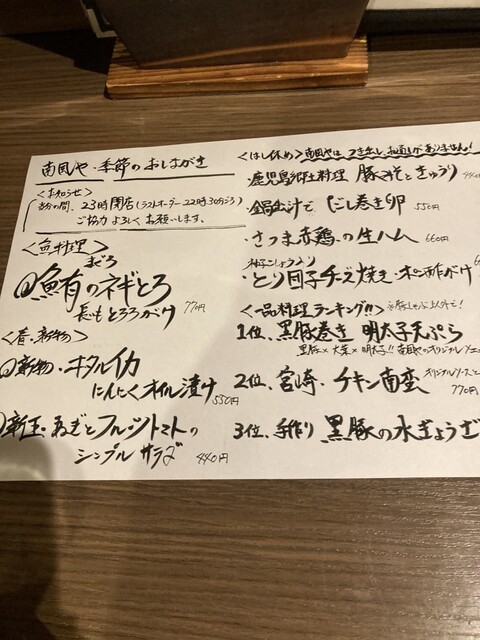 南風や・季節のおしながき
<お知らせ>
当分の間、23時閉店(ラストオーダー22時30分ごろ)
ご協力よろしくお願いします。
<魚料理>
まぐろ
鮪のネギとろ
長もとろろがけ 770円
<春・新物>
新物・ホタルイカ
にんにくオイル漬け 550円
新玉ねぎとフルーツトマトの
シンプルサラダ 440円
<はし休め>南風やは つき出し、お通しがありません!
・鹿児島郷土料理 豚みそときゅうり
・鍋出汁で だし巻き卵 550円
・さつま赤鶏の生ハム 660円
・とり団子チーズ焼き・ポン酢がけ
<一品料理ランキング!!>※豚しゃぶ以外で!
1位、黒豚巻き 明太子天ぷら
黒豚×大葉×明太子!! 南風やのオリジナル
2位、宮崎・チキン南蛮 オリジナルソース 770円
3位、手作り 黒豚の水ぎょうざ